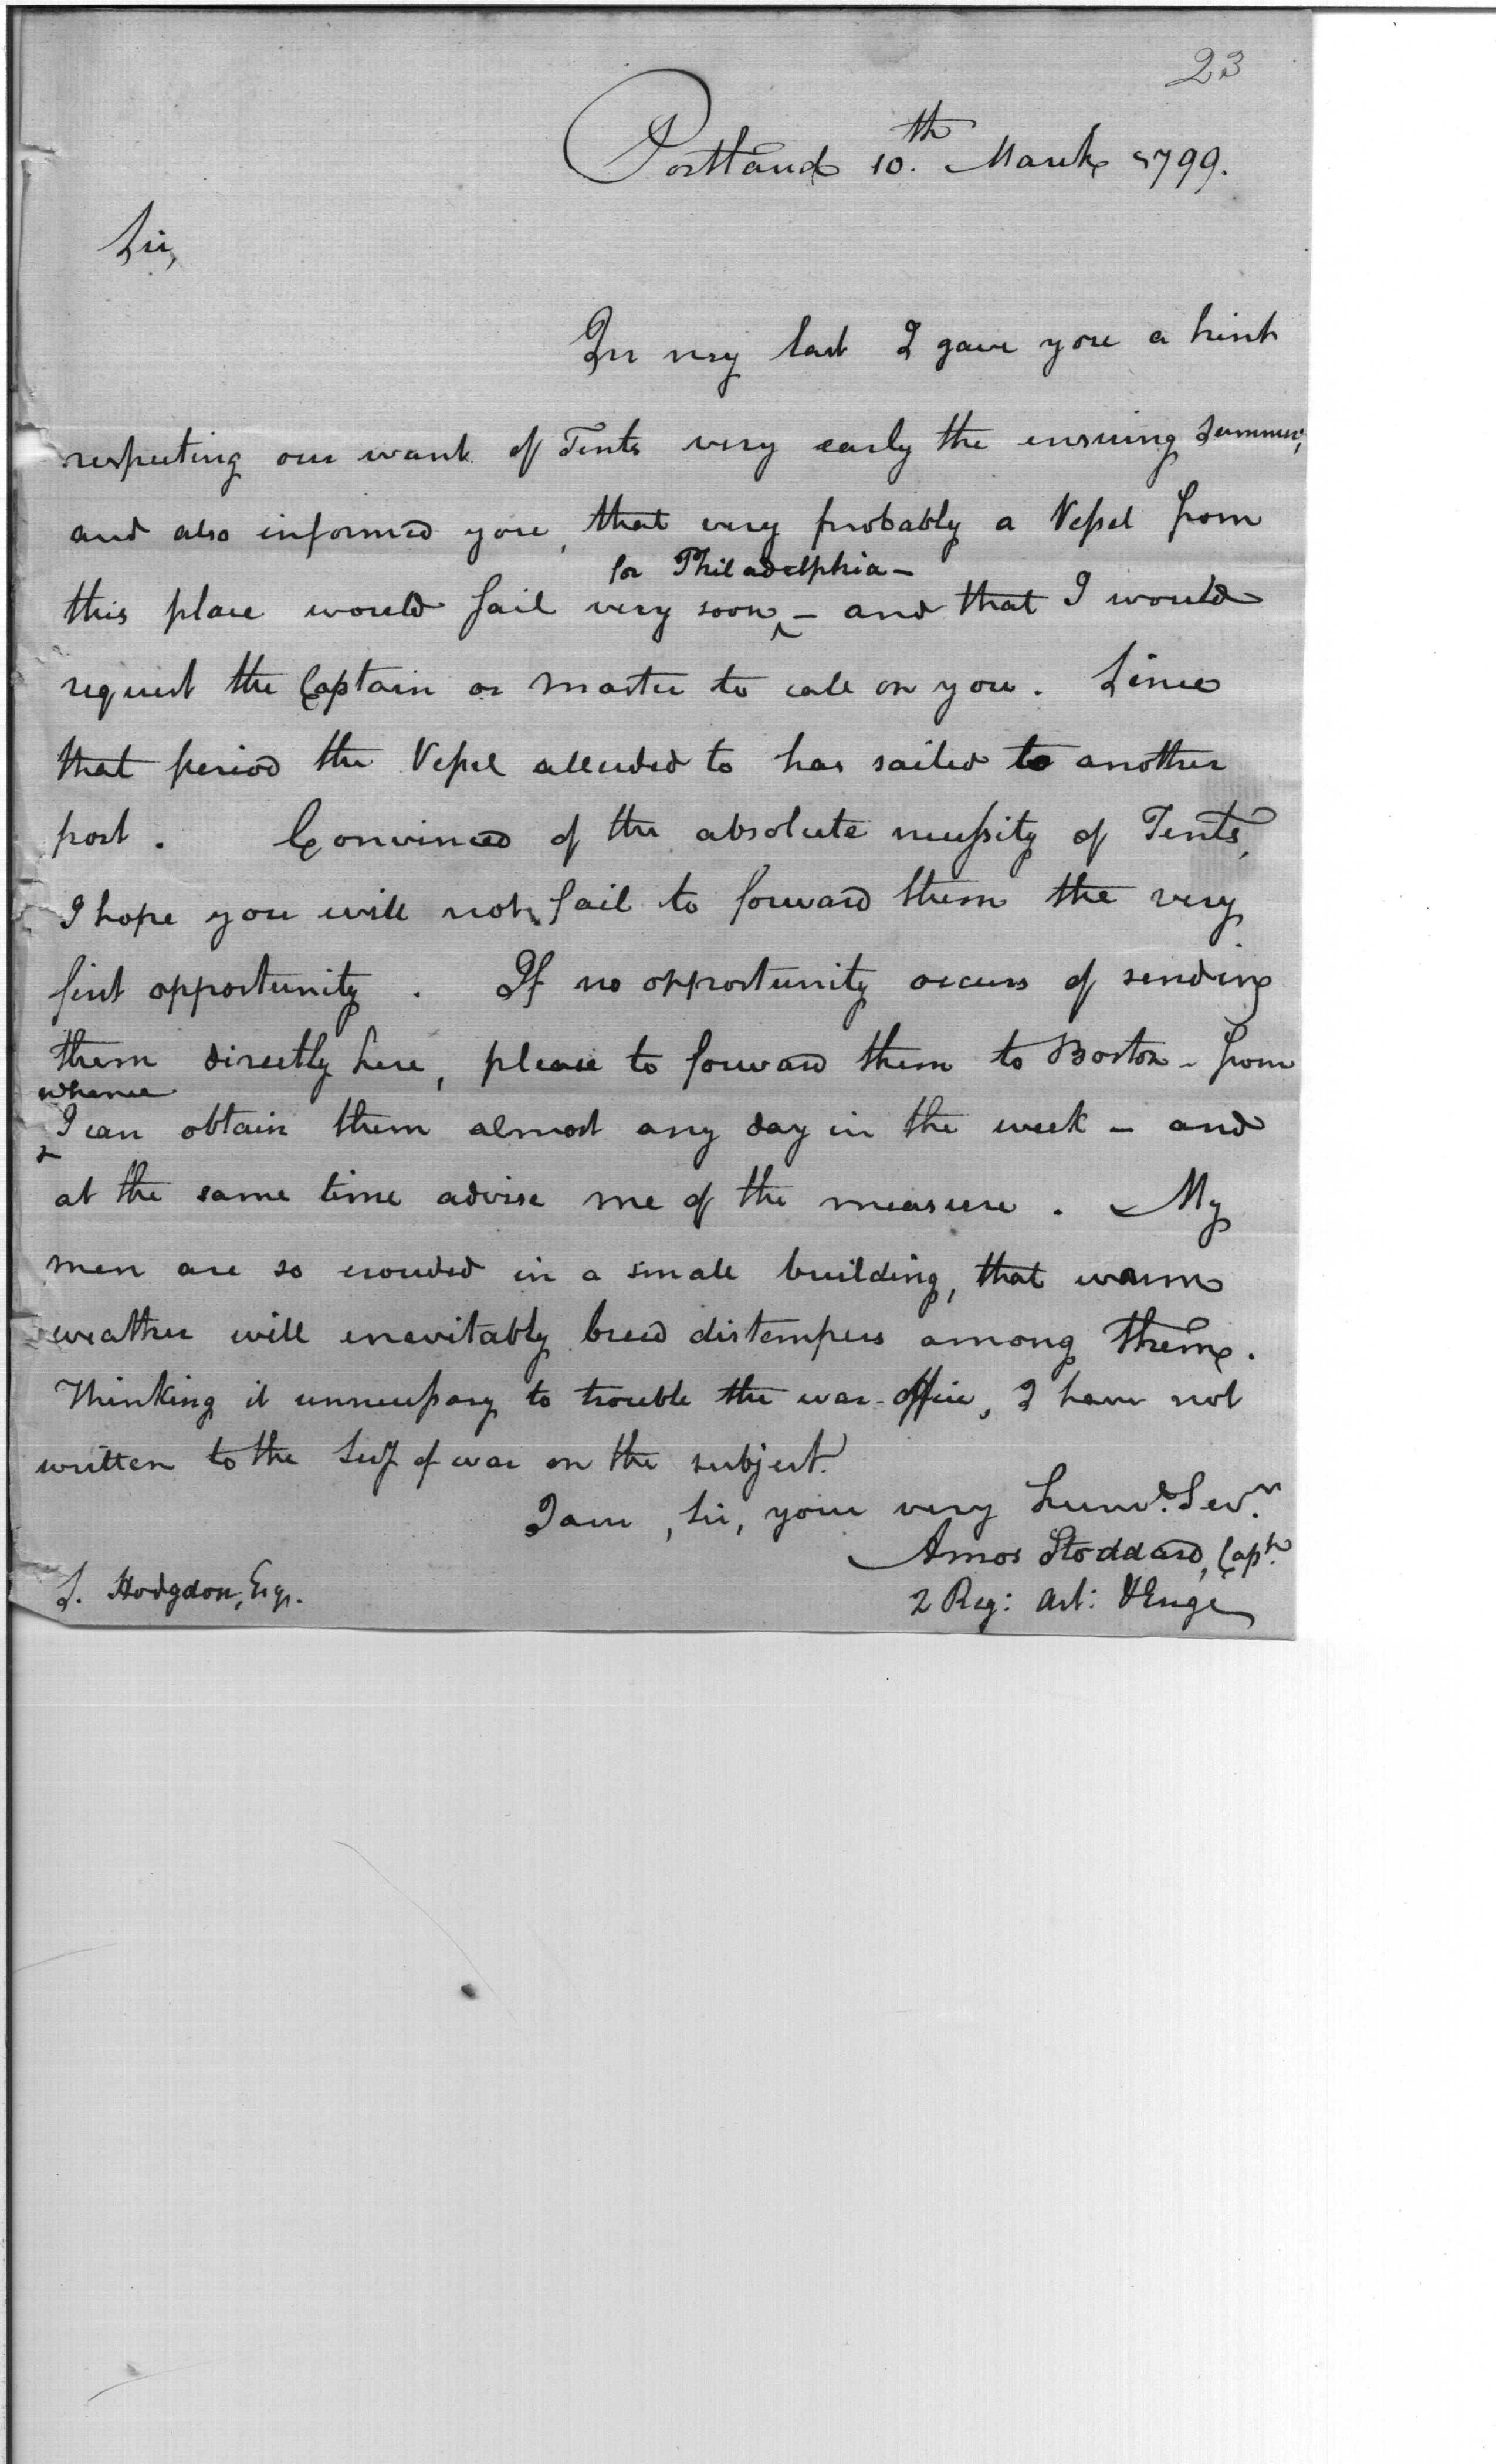 23
Portland 10.th March 1799.
Sir,
In my last I gave you a hint
respecting our want of Tents very early the ensuing summer,
and also informed you, that very probably a Vessel from
for Philadelphia –
this place would sail very soon ^ – and that I would
request the Captain or master to call on you. Since
that period the Vessel alluded to has sailed to another
port. Convinced of the absolute necessity of Tents,
I hope you will not fail to forward them the very
first opportunity. If no opportunity occurs of sending
them directly here, please to forward them to Boston – from
whence
^ I can obtain them almost any day in the week – and
at the same time advise me of the measure. My
men are so crouded in a small building, that warm
weather will inevitably breed distempers among them.
Thinking it unnecessary to trouble the war-office, I have not
written to the Secy of war on the subject.
I am, Sir, your very humb.e Ser.t
Amos Stoddard, Capt.
S. Hodgdon, Esqr.
2 Reg: Art: & Engi